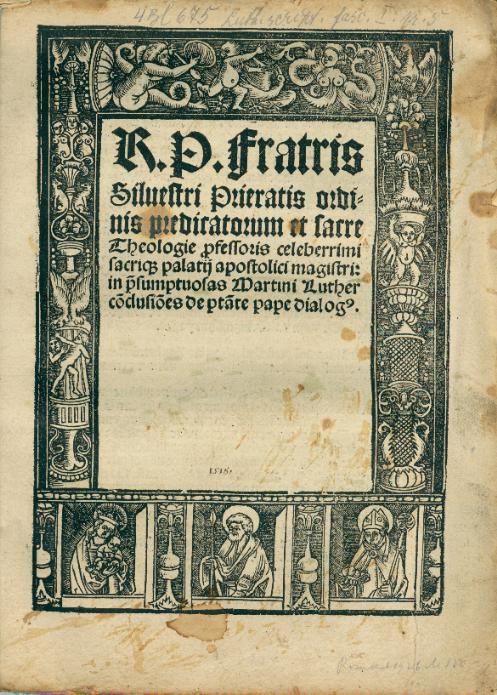 4Bl 675 Luth. script. fasc. I. nr. 5
R.P. Fratris
Siluestri Prieratis ordi-
nis predicatorum et sacre
Theologie ꝓfessoris celeberrimi
sacriqꝫ palatij apostolici magistri:
in p̄sumptuosas Martini Luther
cōclusiōes de ptāte pape dialogꝰ.
1518.